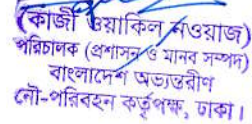 (কাজী ওয়াকিল নওয়াজ)
পরিচালক (প্রশাসন ও মানব সম্পদ)
বাংলাদেশ অভ্যন্তরীণ
নৌ-পরিবহন কর্তৃপক্ষ, ঢাকা।